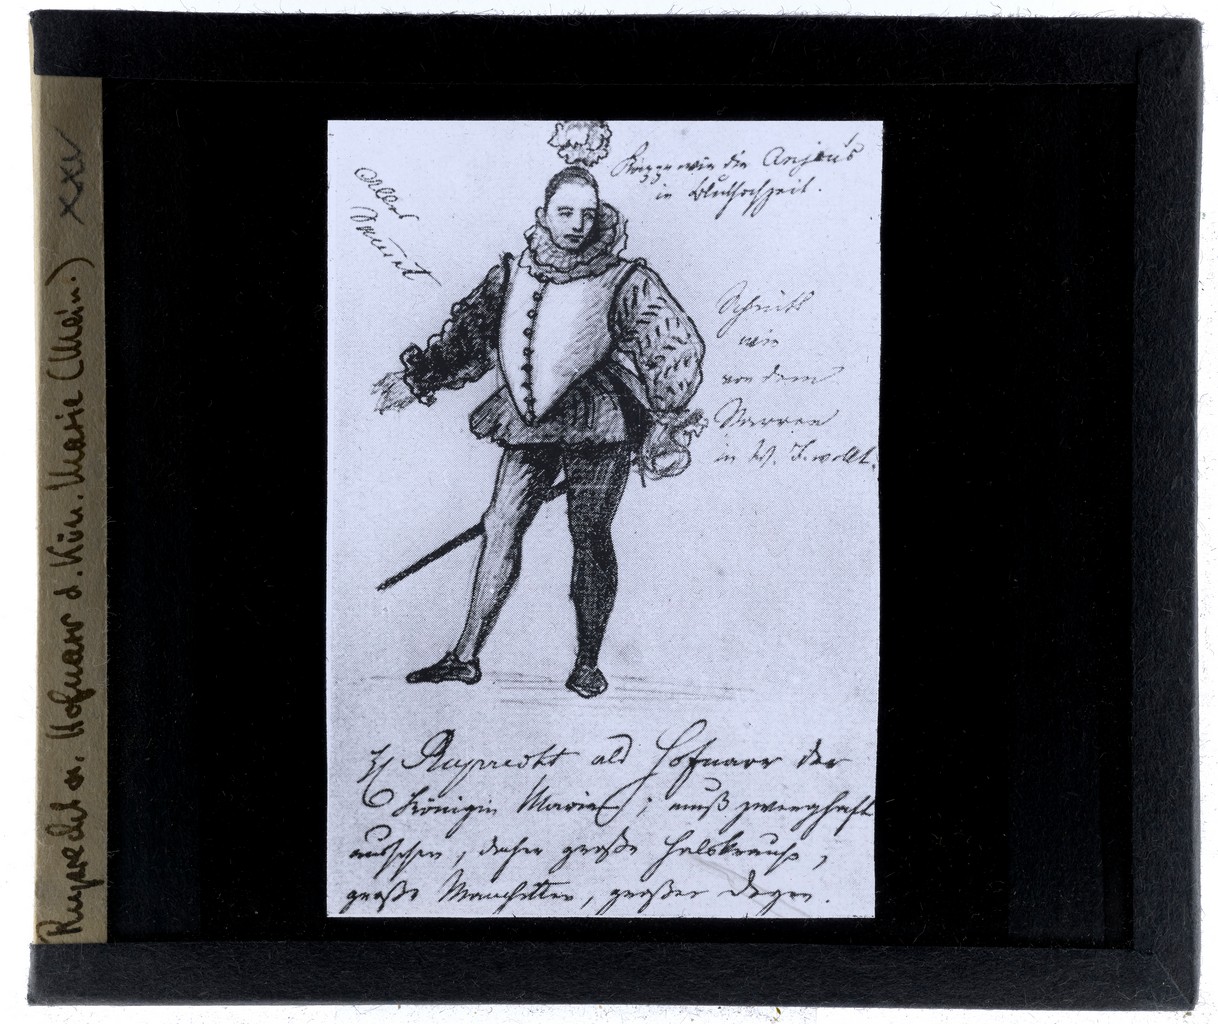 Ruprecht a. Hofnarr d. Kön. Marie (Mein.)
XXV
Alles
Damast
Kappe wie die Anjou's
in Bluthochzeit.
Schnitt
wie
von dem
Narren
in W. I. wollt.
Ruprecht als Hofnarr der
Königin Marie; muß zwerghaft
aussehen, daher große Halskrause,
große Manschetten, großer Degen.